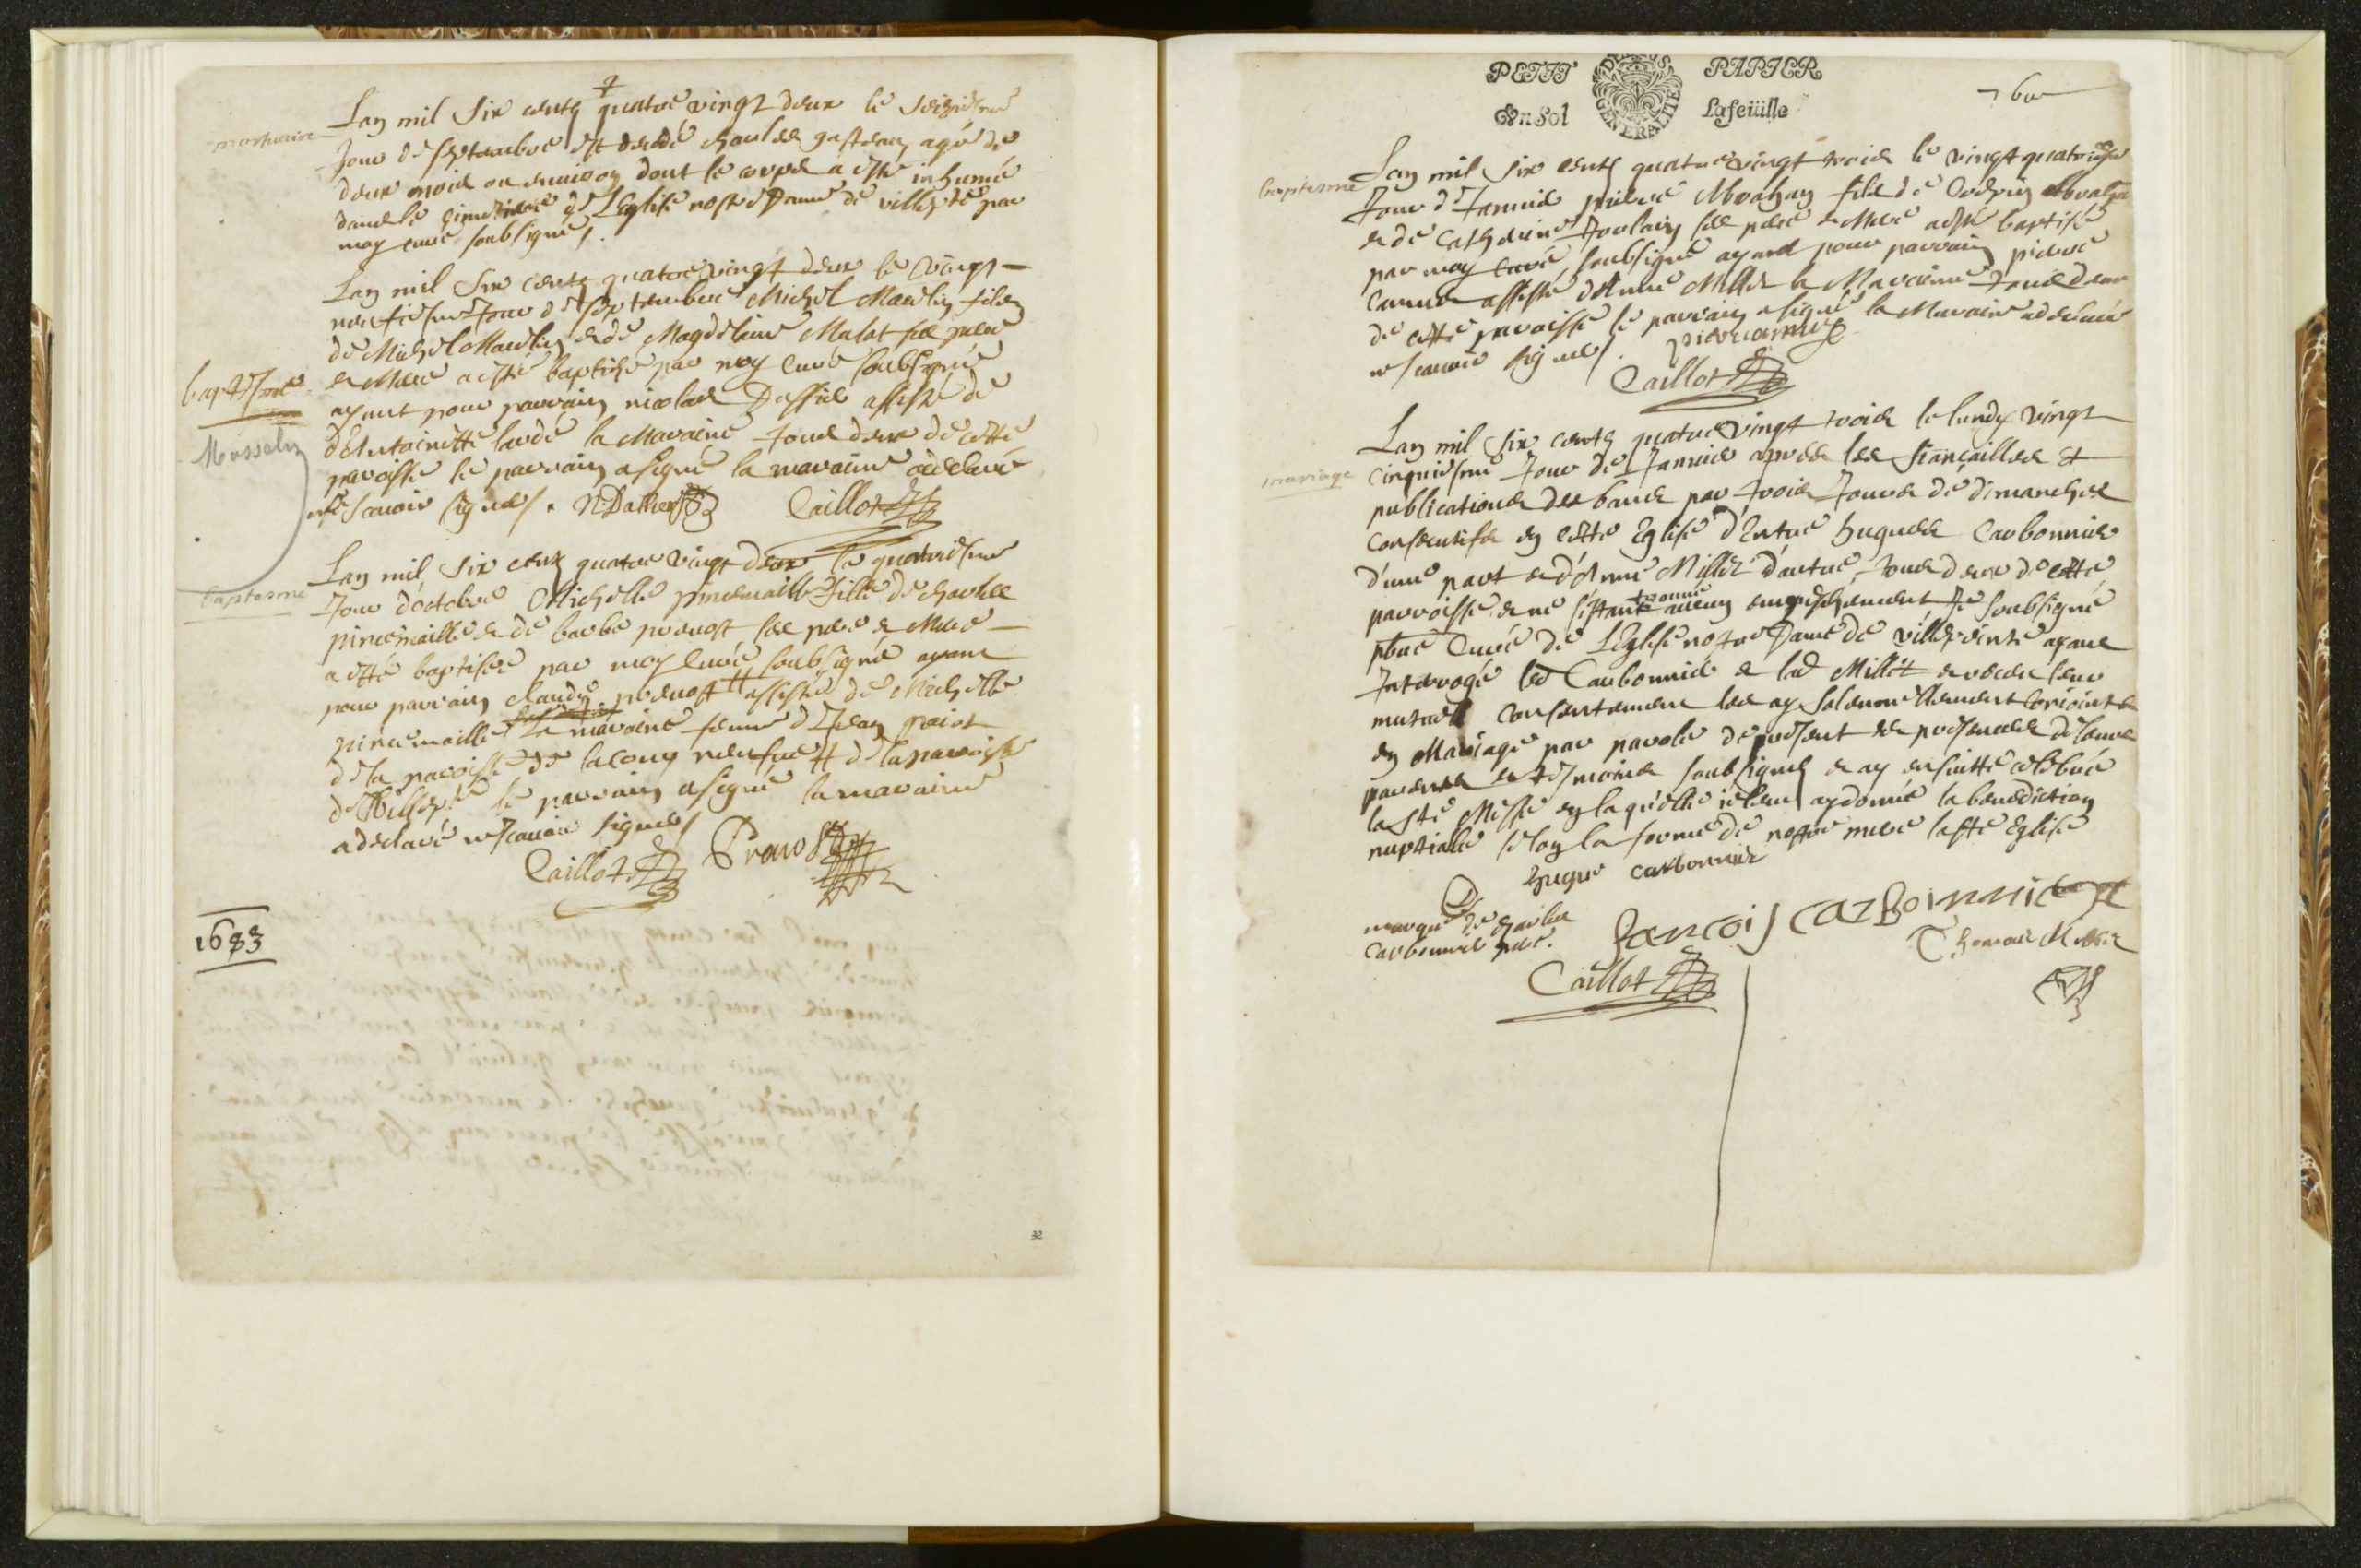 mortuaire
Lan mil Six cents quatre vingt deux le seiziesme
Jour de septembre est decedé charles gasteau agé de
deux mois ou environ dont le corps a esté inhumé
dans le cimetiere de L'Eglise nostre Dame de par
moy curé soubsigné.
Lan mil Six cents quatre vingt deux le vingt
neufiesme Jour de septembre Michel filz
de Michel et de Magdelaine Malot ses pere
baptesme
et Mere a esté baptisé par moy Curé soubsigné
ayant pour parrain nicolas assisté de
Mosselin
d'Antoinette la Maraine tous deux de cette
paroisse le parrain a signé la maraine a declaré
ne scavoir signer. Caillot
Lan mil Six cents quatre vingt deux le quatriesme
baptesme
Jour d'octobre Michelle pincemaille fille de charles
pincemaille et de barbe prevost ses pere et Mere
a esté baptisée par moy Curé soubsigné ayant
pour parrain claude prevost # assisté de Michelle
pincemaille la maraine femme de Jean
de la paroisse de # de la paroisse
de le parrain a signé la maraine
a declaré ne scavoir signer
Caillot Prevost
1683
32
PETIT PAPIER
Un Sol GENERALITE La feüille
baptesme
Lan mil Six cents quatre vingt trois le vingt quatriesme
Jour de Janvier pierre Abraham fils de Abraham
et de Catherine ses pere et Mere a esté baptisé
par moy Curé soubsigné ayant pour parrain pierre
assisté d'Anne Millet la Maraine tous deux
de cette paroisse le parrain a signé la Maraine a declaré
ne scavoir signer.
Caillot
Lan mil Six cents quatre vingt trois le lundy vingt
mariage
cinquiesme Jour de Janvier apres les fiançailles et
publications des bancs par trois Jours de dimanches
consecutifs en cette Eglise d'Entre hugues Carbonnier
d'une part et d'Anne Millet d'autre, tous deux de cette
parroisse et ne s'estant trouvé aucun empeschement Je soubsigné
pbre Curé de L'Eglise notre Dame de ayant
Interrogé led Carbonnier et lad Millet et receu leur
mutuel consentement les ay solemnellement conjoints
en Mariage par parolle de present et presences de leurs
parents et tesmoins soubsignés et ay ensuitte celebré
la Ste Messe en laquelle je leur ay donné la benediction
nuptialle selon la forme de nostre mere la Ste Eglise
hugue carbonnier
marque de charles
Carbonnier pere.
francois carbonnier
Thomas Millet
Caillot